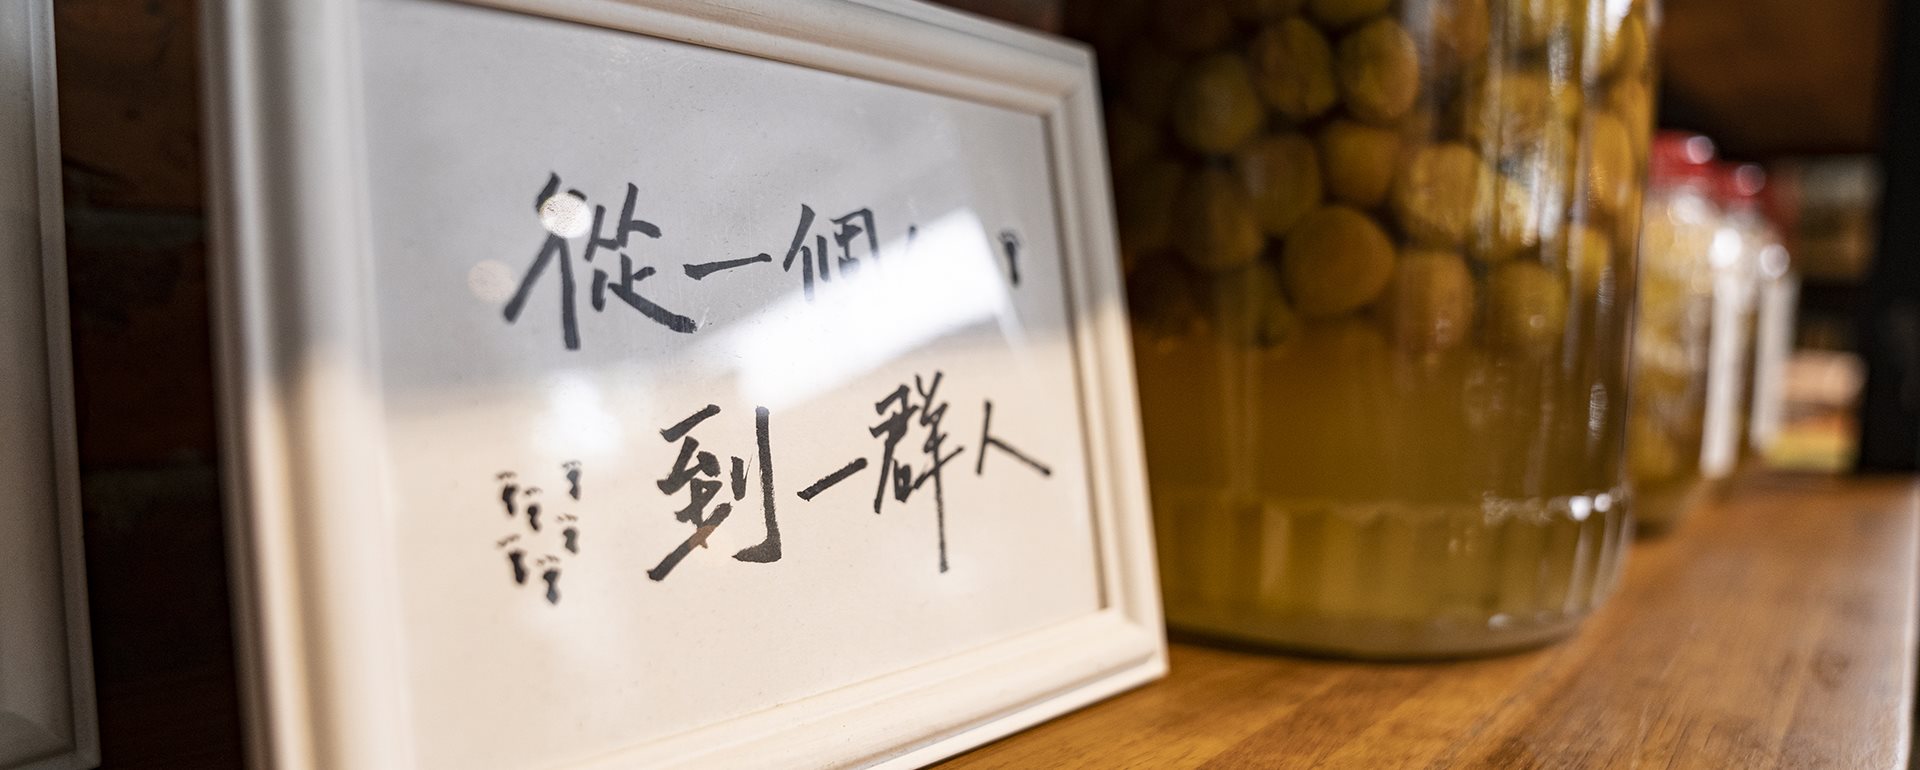 從一個人
到一群人